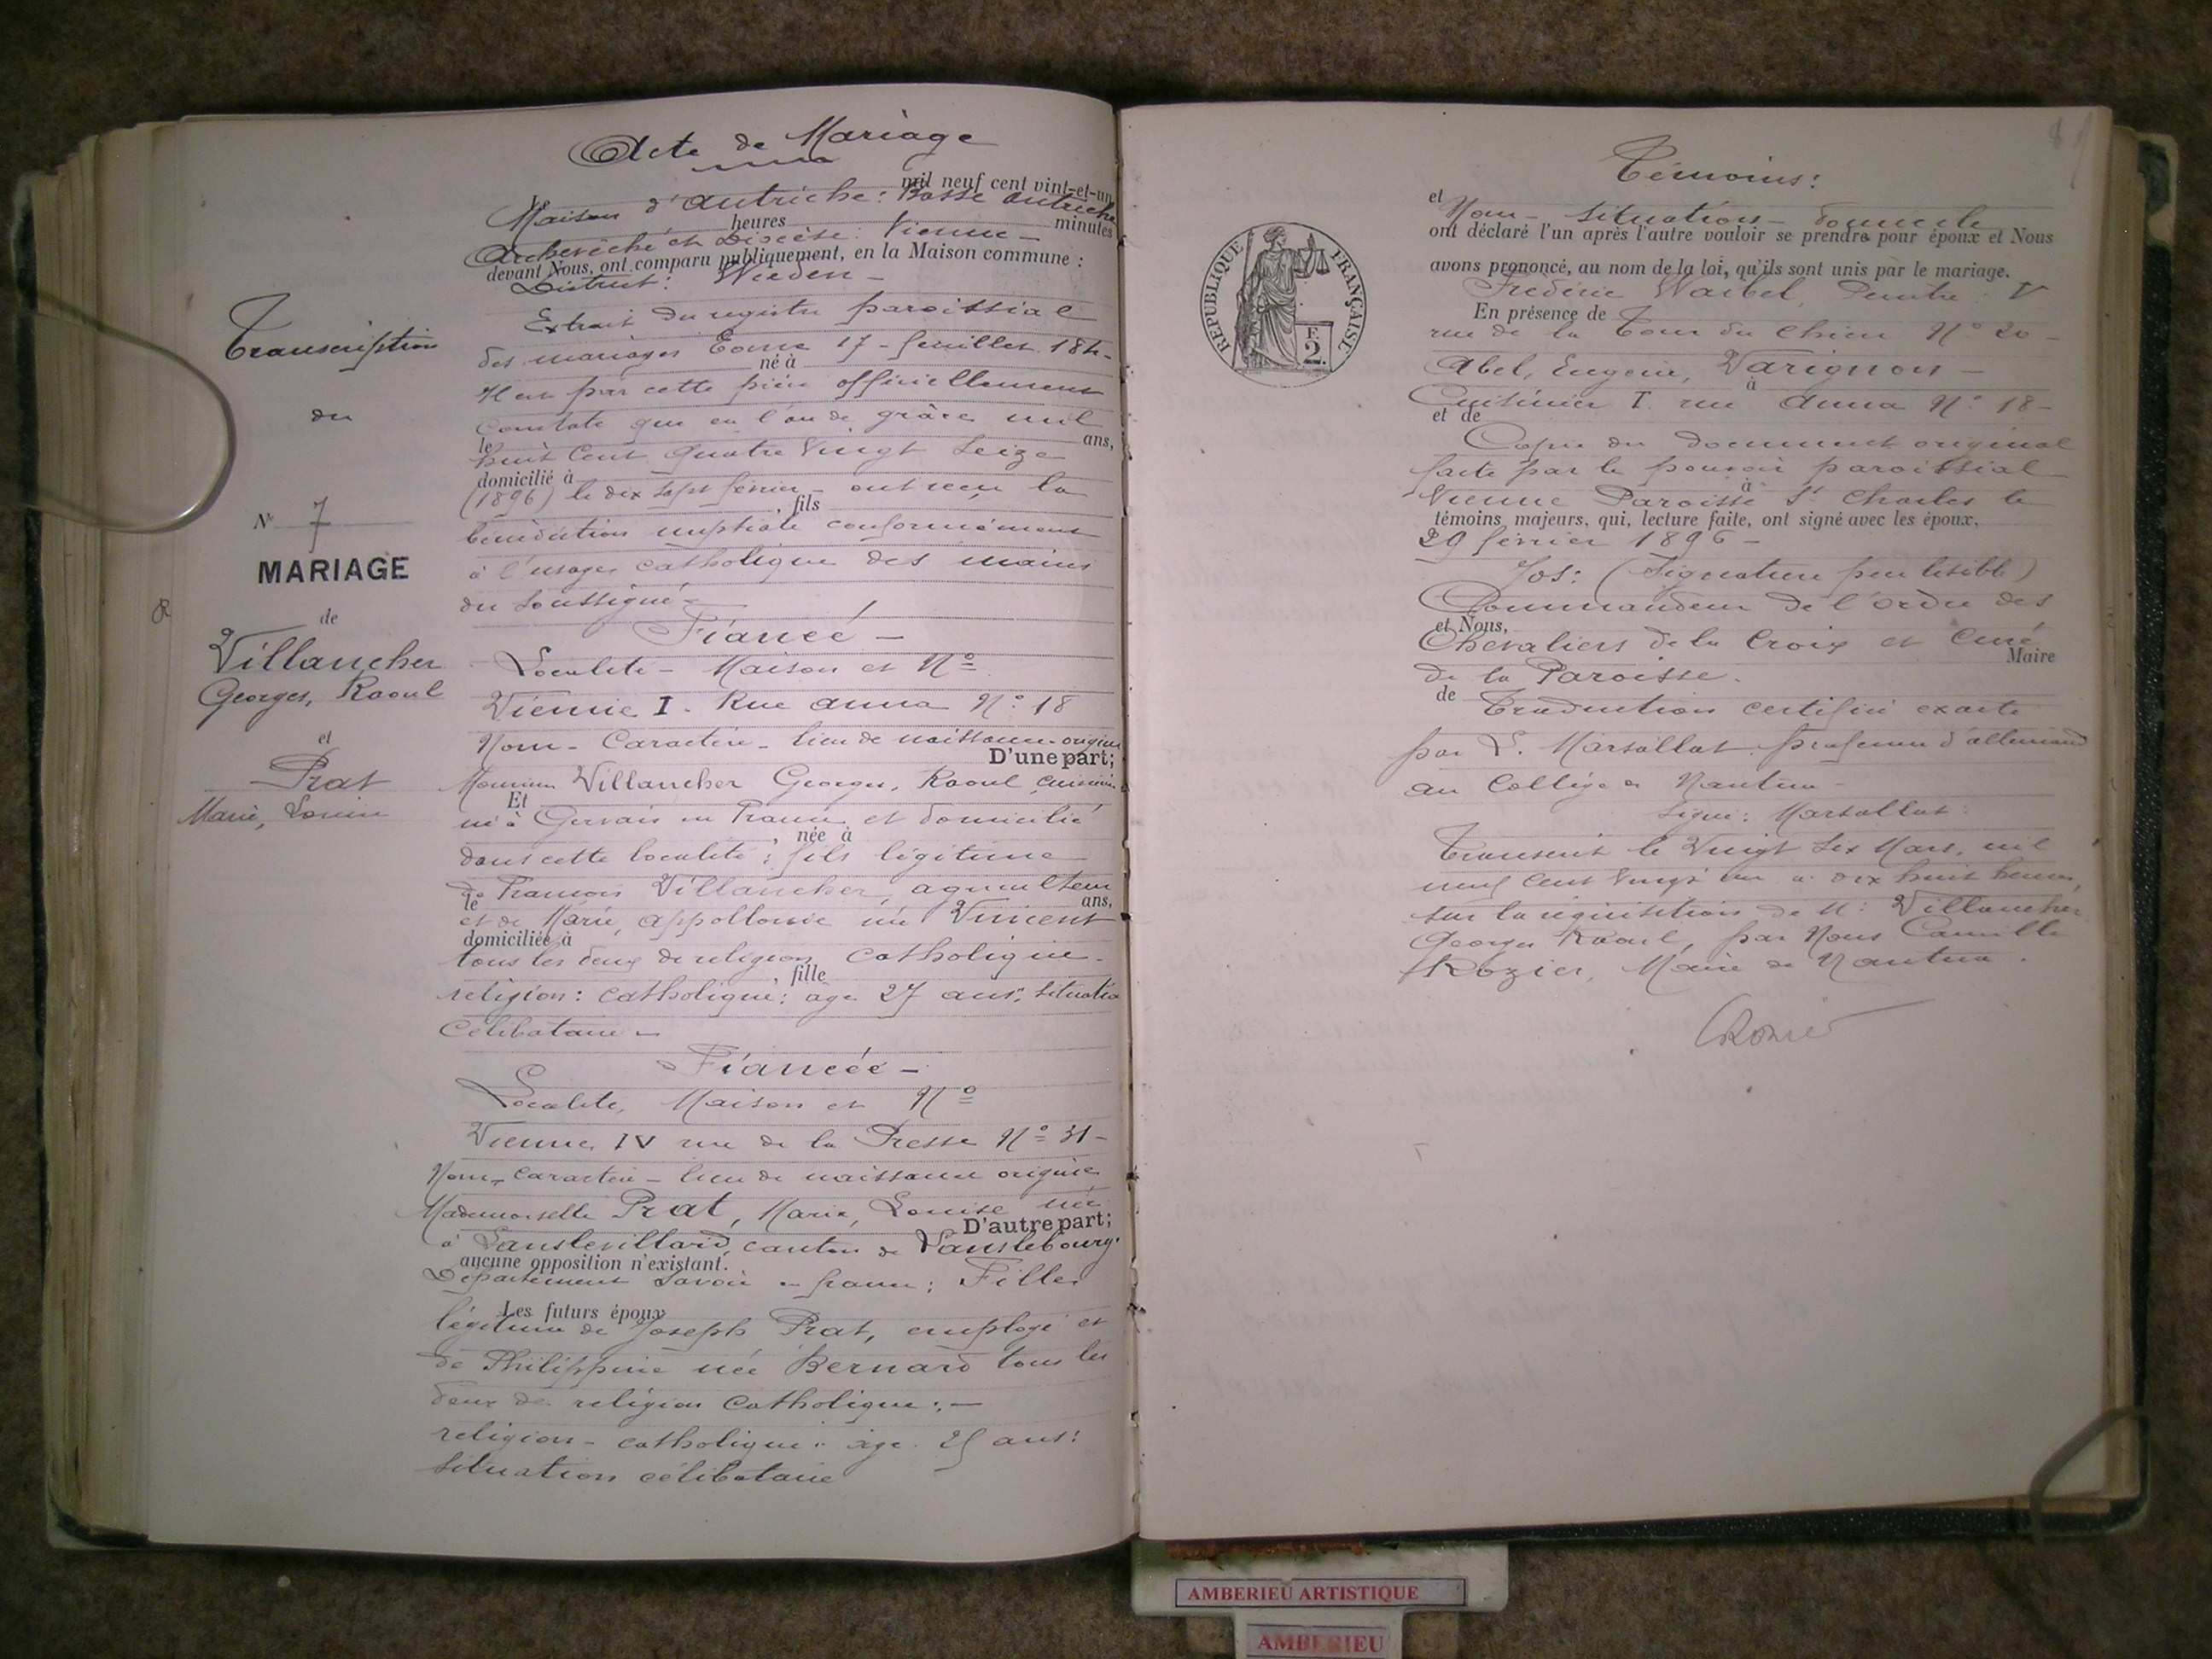 Acte de Mariage
mil neuf cent vint-et-un
Le
Maison d'Autriche: Basse Autriche
heures minutes
Archevêché et Diocèse: Vienne -
devant Nous, ont comparu publiquement, en la Maison commune :
District: Wieden -
Extrait du registre paroissial
des mariages Tome 17 - feuillet 184 -
né à
Il est par cette pièce officiellement
constaté que en l'an de grâce mil
le ans,
huit cent quatre vingt seize
domicilié à
(1896) le dix sept février - ont reçu la
, fils
bénédiction nuptiale conformément
à l'usage catholique des mains
du soussigné -
Transcription
du
N° 7
MARIAGE
de
Villancher
Georges, Raoul
et
Prat
Marie, Louise
Fiancé -
Localité - Maison et N°
Vienne I - Rue Anna N° 18
Nom - Caractère - lieu de naissance - origine
D'une part;
Monsieur Villancher Georges, Raoul, cuisinier
Et
né à Gervais en France et domicilié
, née à
dans cette localité; fils légitime
de François Villancher, agriculteur
le ans,
et de Marie, Appollonie née Vincent
domiciliée à
tous les deux de religion catholique -
, fille
religion: catholique: age 27 ans: situation
célibataire -
Fiancée -
Localité, Maison et N°
Vienne IV rue de la Presse N° 31 -
Nom - caractère - lieu de naissance origine
Mademoiselle Prat, Marie, Louise née
D'autre part;
à Lanslevillard, canton de Lanslebourg.
aucune opposition n'existant.
Département Savoie - france; Fille
Les futurs époux
légitime de Joseph Prat, employé et
de Philippine née Bernard tous les
deux de religion catholique; -
religion - catholique: âge 25 ans:
situation célibataire
Témoins:
et
Nom - situation - domicile
ont déclaré l'un après l'autre vouloir se prendre pour époux et Nous
avons prononcé, au nom de la loi, qu'ils sont unis par le mariage.
Frédéric Waibel, Peintre V
En présence de
rue de la Tour du chien N° 20 -
Abel, Eugène, Varignon -
à
Cuisinier I. rue Anna N° 18 -
et de
Copie du document original
faite par le pouvoir paroissial
à
Vienne Paroisse St Charles le
témoins majeurs, qui, lecture faite, ont signé avec les époux,
29 février 1896 -
Jos: (Signature peu lisible)
Commandeur de l'ordre des
et Nous,
Chevaliers de la Croix et Curé
Maire
de la Paroisse.
de
Traduction certifiée exacte
par L. Marsallat professeur d'allemand
au Collège de Nantua -
Signé: Marsallat:
Transcrit le Vingt six Mars, mil
neuf cent vingt un à dix huit heures,
sur la réquisition de M: Villancher
Georges Raoul, par Nous Camille
Rozier, Maire de Nantua.
CRozier
REPUBLIQUE FRANÇAISE
F.
2
AMBERIEU ARTISTIQUE
AMBERIEU